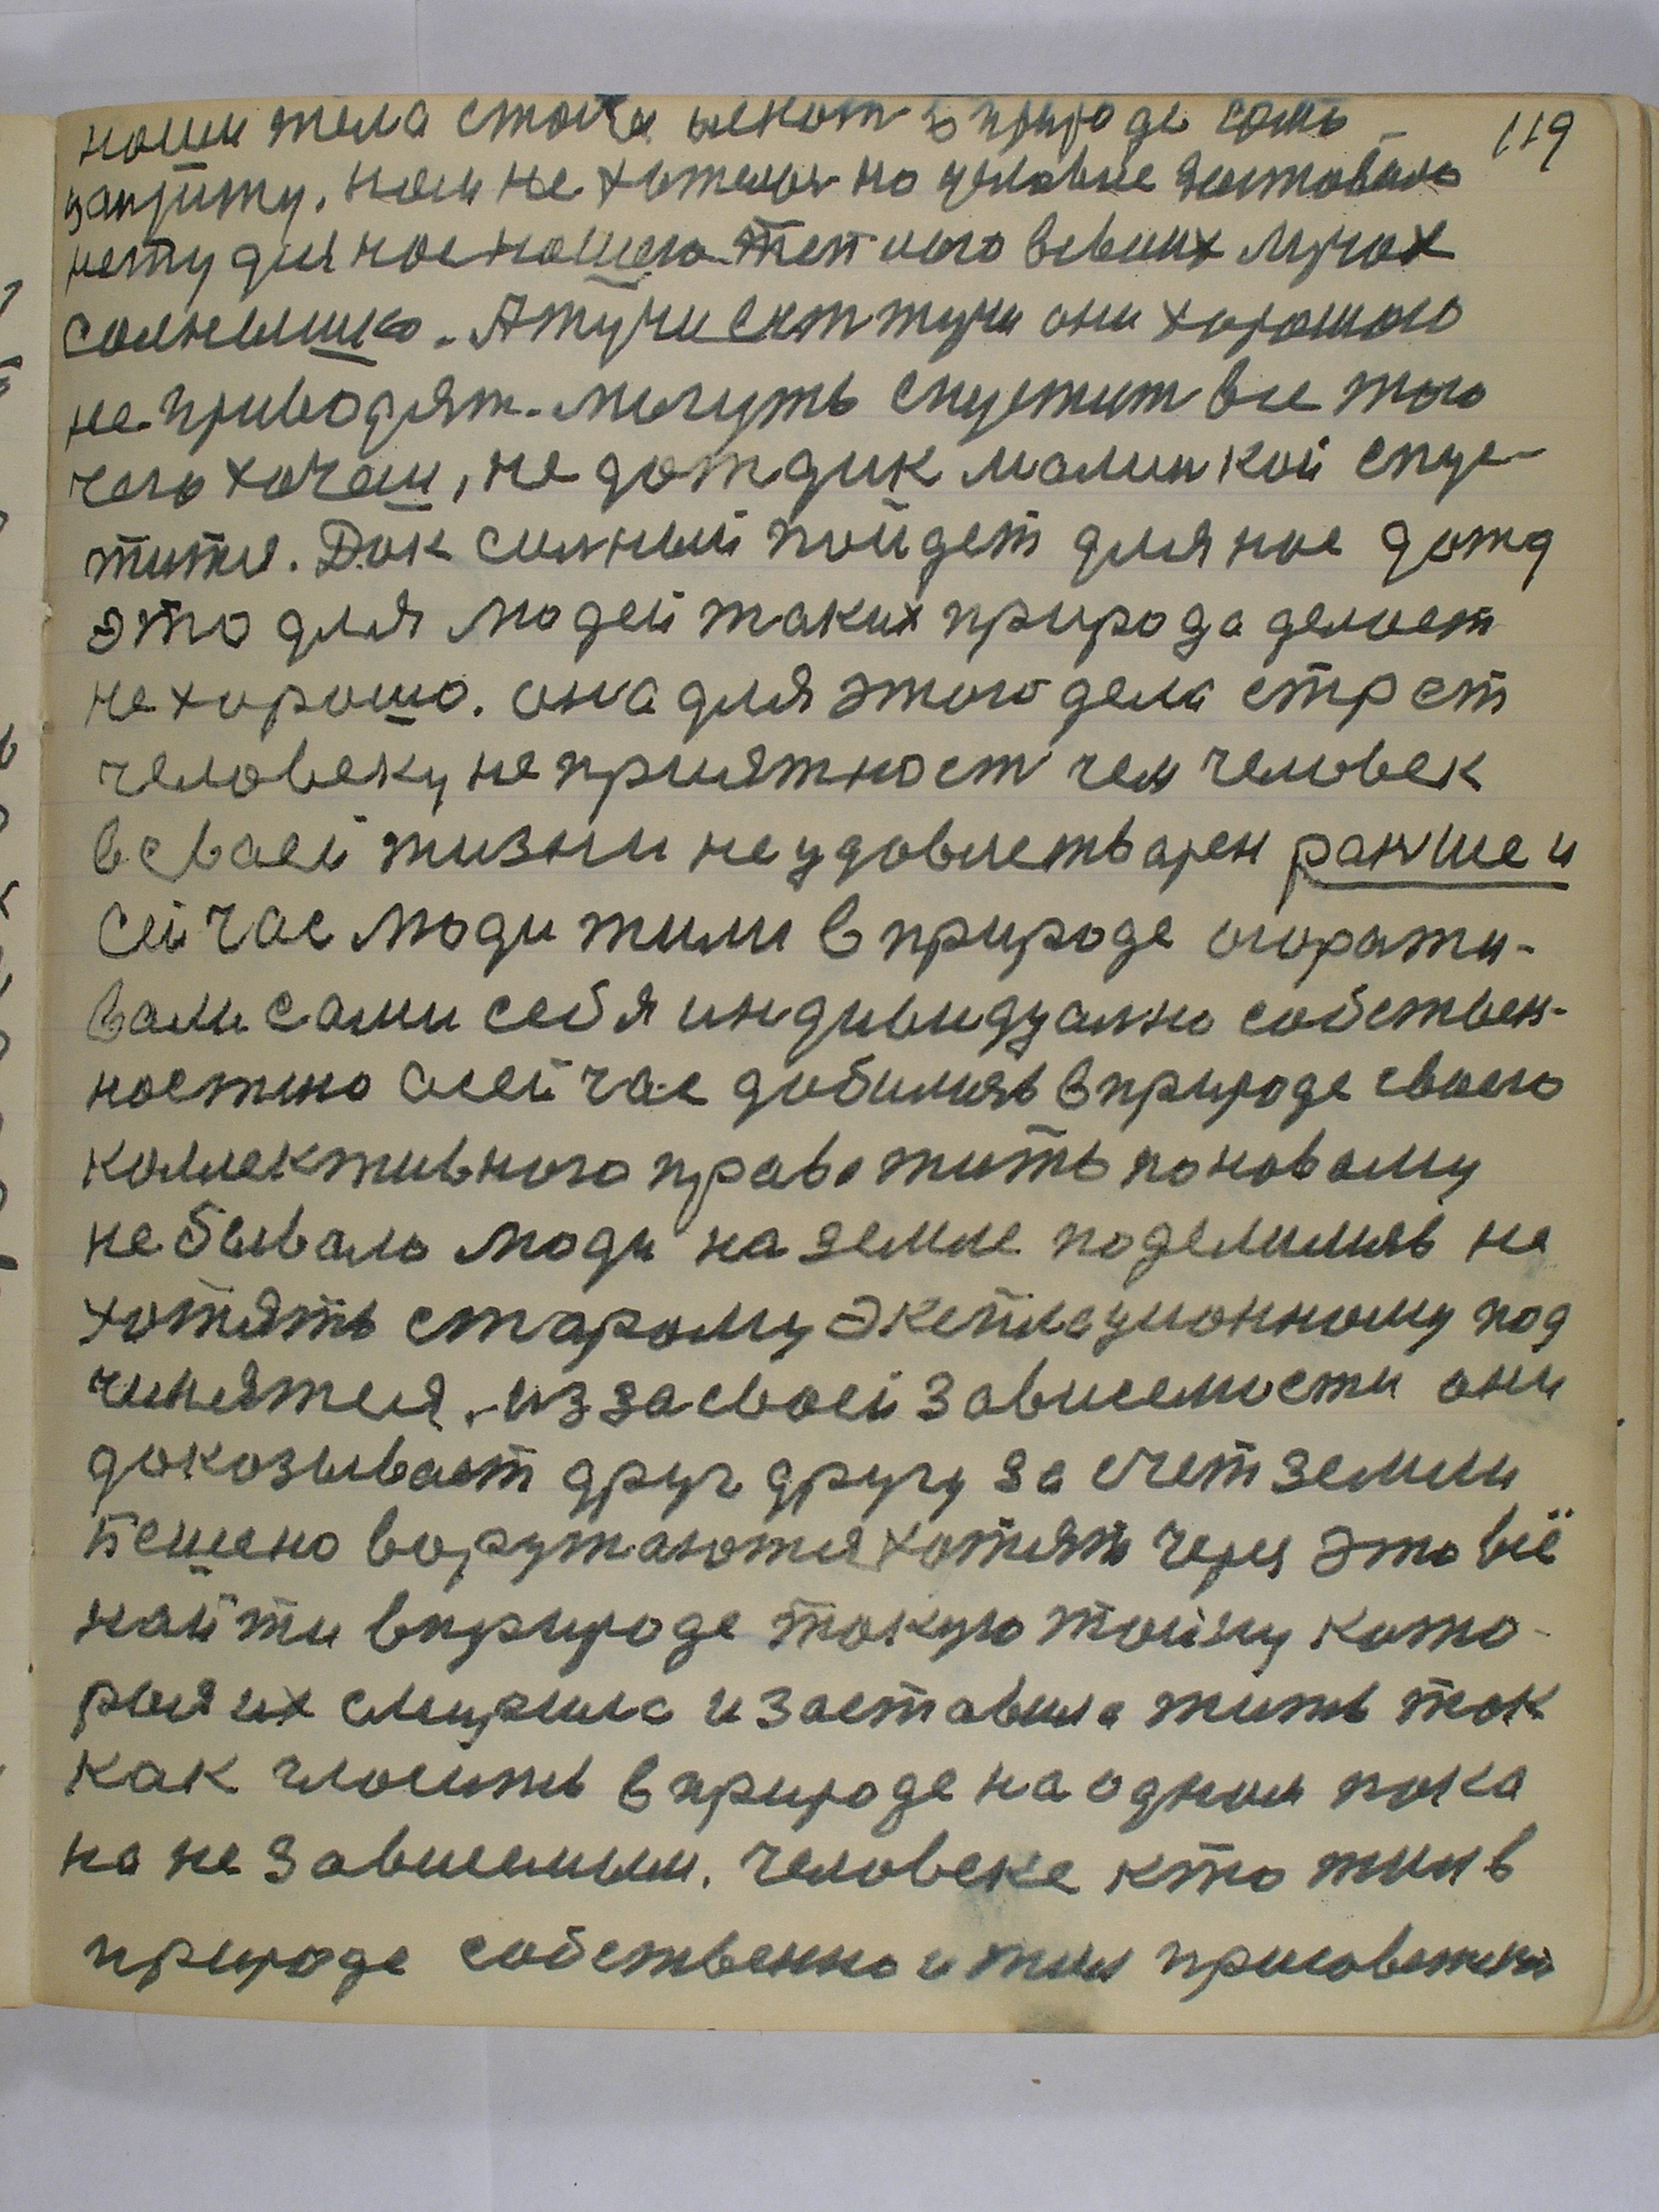 119
наши тела стали искат в природе сами
защиту. нам не хотелос но условие заставило
нету для нас нашего теплого в евших лучах
солнышко. А тучи ест тучи они хорошого
не приводят. могуть спустит все того
чего хочеш, не дождик малинкой спус-
тится. Док силный пойдет для нас дожд
это для людей таких природа делает
не хорошо. она для этого дела строет
человеку не приятност чем человек
в своей жизни не удовлетварен ранше и
сейчас люди жили в природе огоражи-
вали сами себя индивидуално собствен-
ностию а сейчас добилися в природе своего
коллективного права жить по новому
не бывало люди на земле поделилися не
хотять старому экспплационному под
чинятся. из за своей зависемости они
доказывает друг другу за счет земли
Бешено воружаются хотять через это всё
найти в природе такую тайну кото-
рая их смирила и заставила жить так
как гласить в природе на одном пока
но не зависемым. человеке кто жил в
природе собственно и жил